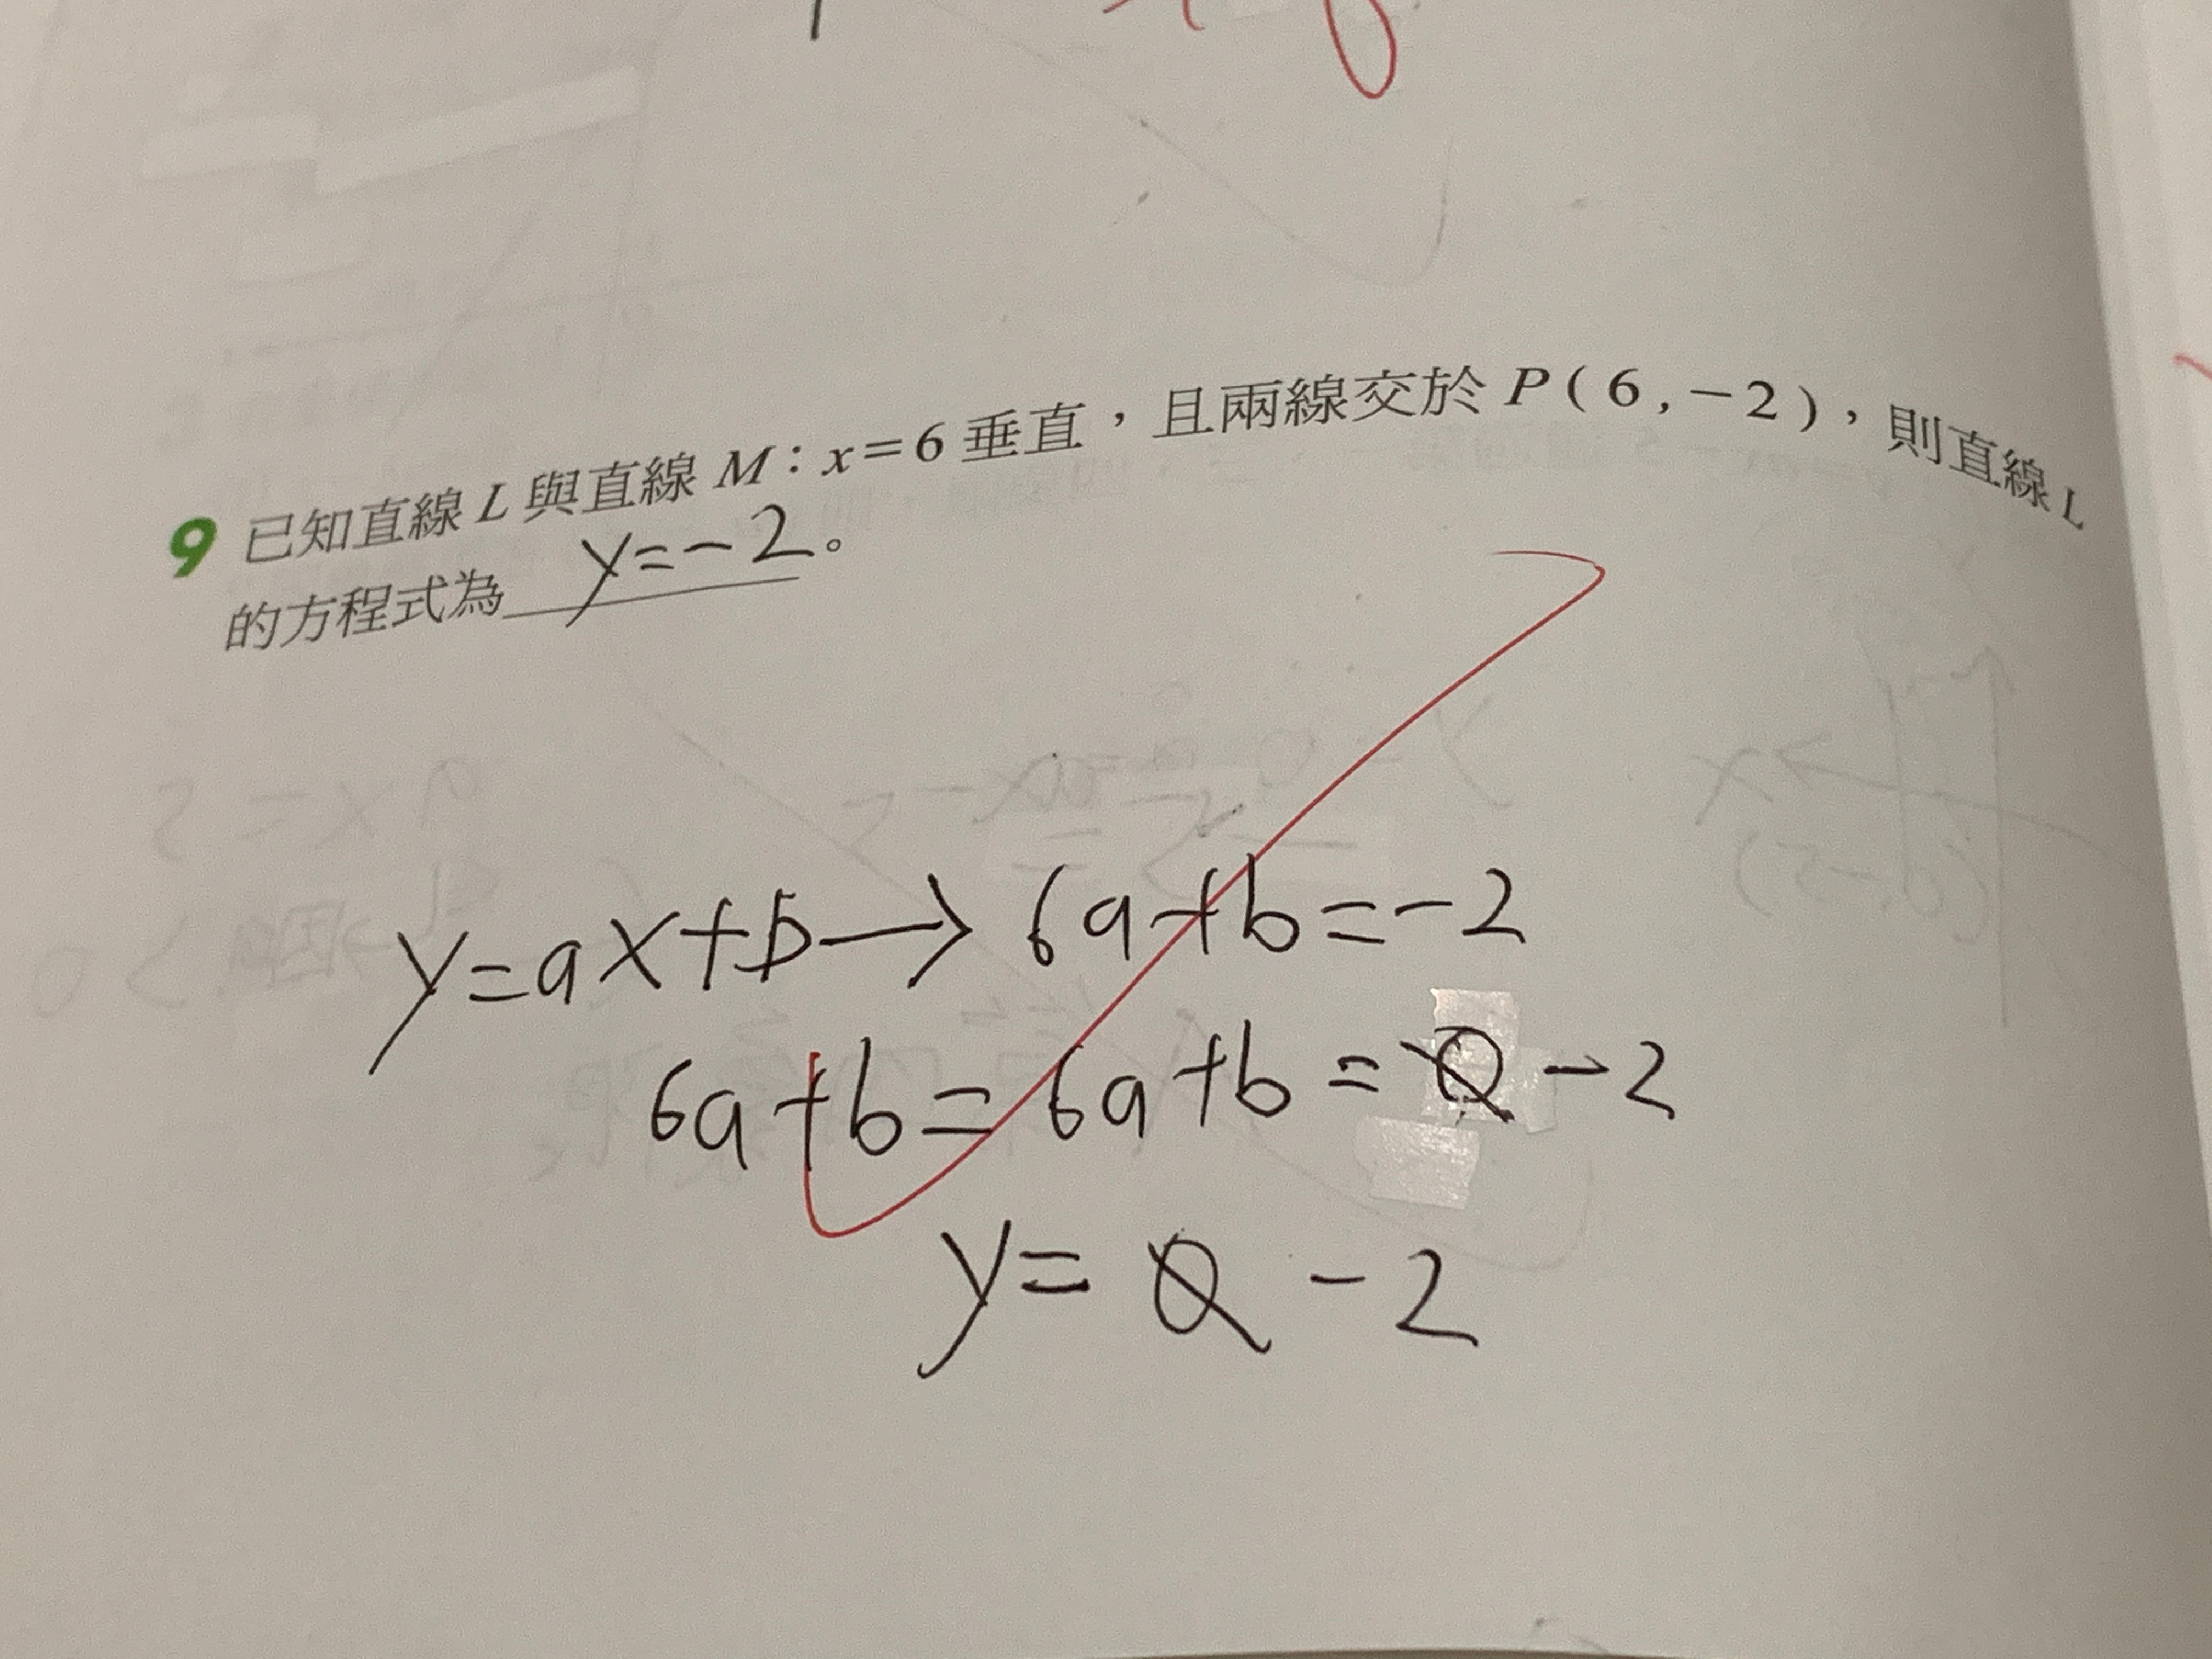 9 已知直線 L 與直線 M：x=6 垂直，且兩線交於 P(6,-2)，則直線 L
的方程式為 y=-2。
y=ax+b→ 6a+b=-2
6a+b=6a+b= -2
y= -2